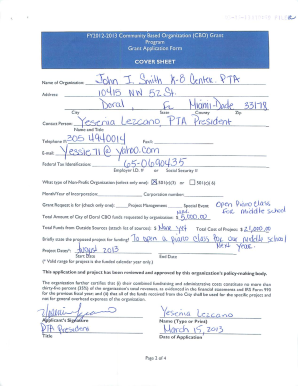 FY2012-2013 Community Based Organization (CBO) Grant
Program
Grant Application Form
COVER SHEET
Name of Organization: John I. Smith K-8 Center PTA
Address: 10415 NW 52 St.
Doral, FL Miami-Dade 33178
City State County Zip
Contact Person: Yesenia Lezcano, PTA President
Name and Title
Telephone #: 305 4940014 Fax#:
E-mail: Yessie71@yahoo.com
Federal Tax Identification: 65-0690435
Employer I.D. # or Social Security #
What type of Non-Profit Organization (select only one) 501(c)(3) 501(c)6
Month/Year of Incorporation: Corporation number:
Grant Request is for (check only one): Project Management Special Event Open Piano class
for Middle school
Total Amount of City of Doral CBO funds requested by organization: $5,000.00
Total Funds from Outside Sources (attach list of sources): $ Total Cost of Project: $
Briefly state the proposed project for funding: To open a piano class for our middle school
next year.
Project Dates*: August 2013
Start Date End Date
(* Valid range for project is the funded calendar year only.)
This application and project has been reviewed and approved by this organization's policy-making body.
The organization further certifies that (i) their combined fundraising and administrative costs constitute no more than
forty-five percent (45%) of the organization's total revenues, as evidenced in the financial statements and IRS Form 990
for the previous fiscal year; and (ii) that all of the funds received from the City shall be used for the specific project and
not for general overhead expenses of the organization.
Yesenia Lezcano Yesenia Lezcano
Applicant's Signature Name (Type or Print)
PTA President March 15, 2013
Title Date of Application
Page 2 of 4